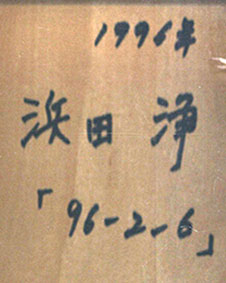 1996年
浜田 浄
「96-2-6」